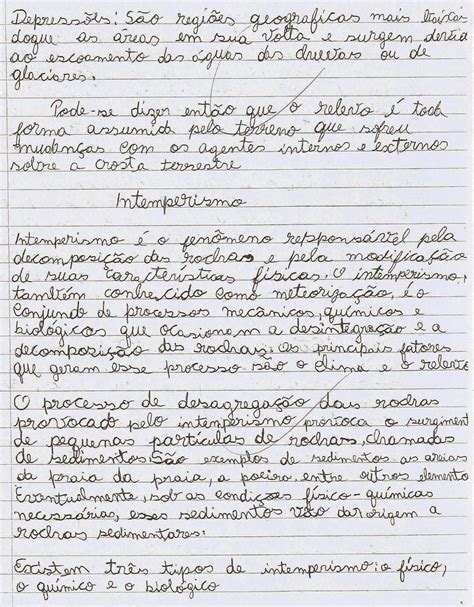 Depressões: São regiões geograficas mais baixas
doque as áreas em sua volta e surgem devido
ao escoamento das águas das chuvas ou de
glaciares.
Pode-se dizer então que o relevo é toda
forma assumida pelo terreno que sofreu
mudenças com os agentes internos e externos
sobre a crosta terrestre
Intemperismo
Intemperismo é o fenômeno responsável pela
decomposição das rochas e pela modificação
de suas características físicas. O intemperismo,
também conhecido como meteorização, é o
conjundo de processos mecânicos, químicos e
biológicos que ocasionam a desintegração e a
decomposição das rochas. Os principais fatores
que geram esse processo são o clima e o relevo
O processo de desagregação das rochas
provocado pelo intemperismo provoca o surgiment
de pequenas partículas de rochas, chamadas
de sedimentos. São exemplos de sedimentos as areias
da praia da praia, a poeira, entre outros elemento
Eventualmente, sob as condições físico-químicas
necessárias, esses sedimentos vão dar origem a
rochas sedimentares.
Existem três tipos de intemperismo: o físico,
o químico e o biológico